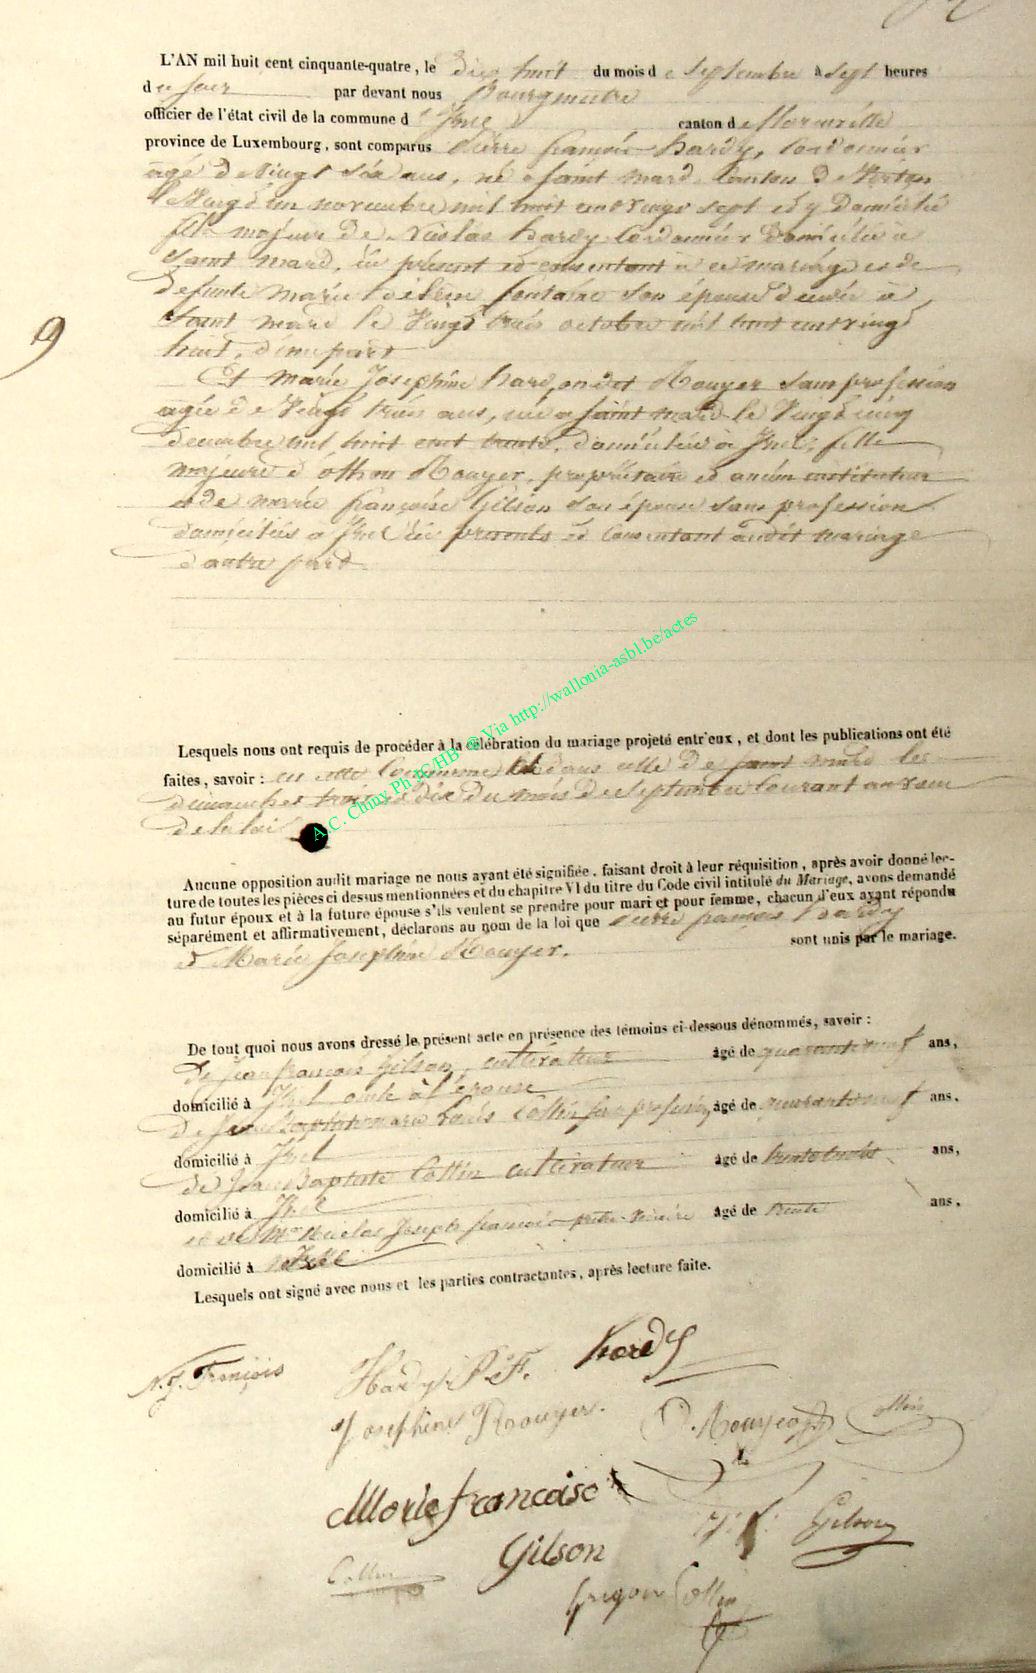 L'AN mil huit cent cinquante-quatre, le dix huit du mois de septembre à sept heures
du soir par devant nous Bourgmestre
officier de l'état civil de la commune d'Izel canton de Florenville
province de Luxembourg, sont comparus Pierre françois hardy, Cordonnier
agé de Vingt six ans, né à saint mard Canton de Virton
le Vingt un novembre mil huit cent vingt sept et y Domicilié
fils majeur de Nicolas hardy Cordonnier Domicilié à
Saint mard, ici présent et consentant à ce mariage et de
Defunte marie fontaine son épouse décédée à
Saint mard le Vingt trois octobre mil huit cent vingt
huit, d'une part
Et Marie Josephine Rouyer sans profession
agée de Vingt trois ans, née à saint mard le Vingt cinq
decembre mil huit cent trente, domiciliée à Izel, fille
majeure d'othon Rouyer, propriétaire et ancien instituteur
et de marie françoise Gilson son épouse sans profession
domiciliés à Izel ici presents et Consentant audit mariage
d'autre part
Lesquels nous ont requis de procéder à la célébration du mariage projeté entr'eux, et dont les publications ont été
faites, savoir : en cette Commune et dans celle de saint mard les
dimanches trois et dix du mois de Septembre Courant au vœu
de la loi
Aucune opposition audit mariage ne nous ayant été signifiée, faisant droit à leur réquisition, après avoir donné lec-
ture de toutes les pièces ci dessus mentionnées et du chapitre VI du titre du Code civil intitulé du Mariage, avons demandé
au futur époux et à la future épouse s'ils veulent se prendre pour mari et pour femme, chacun d'eux ayant répondu
séparément et affirmativement, déclarons au nom de la loi que Pierre françois hardy
et Marie Josephine Rouyer. sont unis par le mariage.
De tout quoi nous avons dressé le présent acte en présence des témoins ci-dessous dénommés, savoir :
de Jean françois Gilson, cultivateur âgé de quarante neuf ans,
domicilié à Izel oncle à l'épouse
de Jean Baptiste marie Louis Collin sans profession, âgé de quarante neuf ans,
domicilié à Izel
de Jean Baptiste Collin cultivateur âgé de trente trois ans,
domicilié à Izel
et de Mr Nicolas Joseph françois prêtre vicaire âgé de trente ans,
domicilié à Izel
Lesquels ont signé avec nous et les parties contractantes, après lecture faite.
N. J. François Hardy P. F. hardy
Josephine Rouyer. O. Rouyer Collin
Marie francoise
Gilson J. f. Gilson
Collin
Collin
9
A.C. Chiny Ph JC/HB @ Via http://wallonia-asbl.be/actes